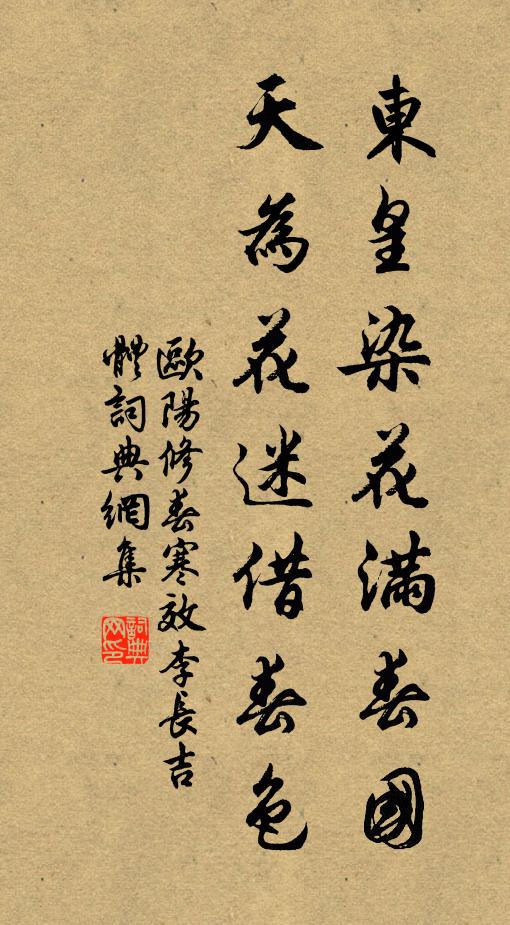 東皇染花滿春國
天為花迷借春色
歐陽修春寒效李長吉
體詞典網集
詞典网印